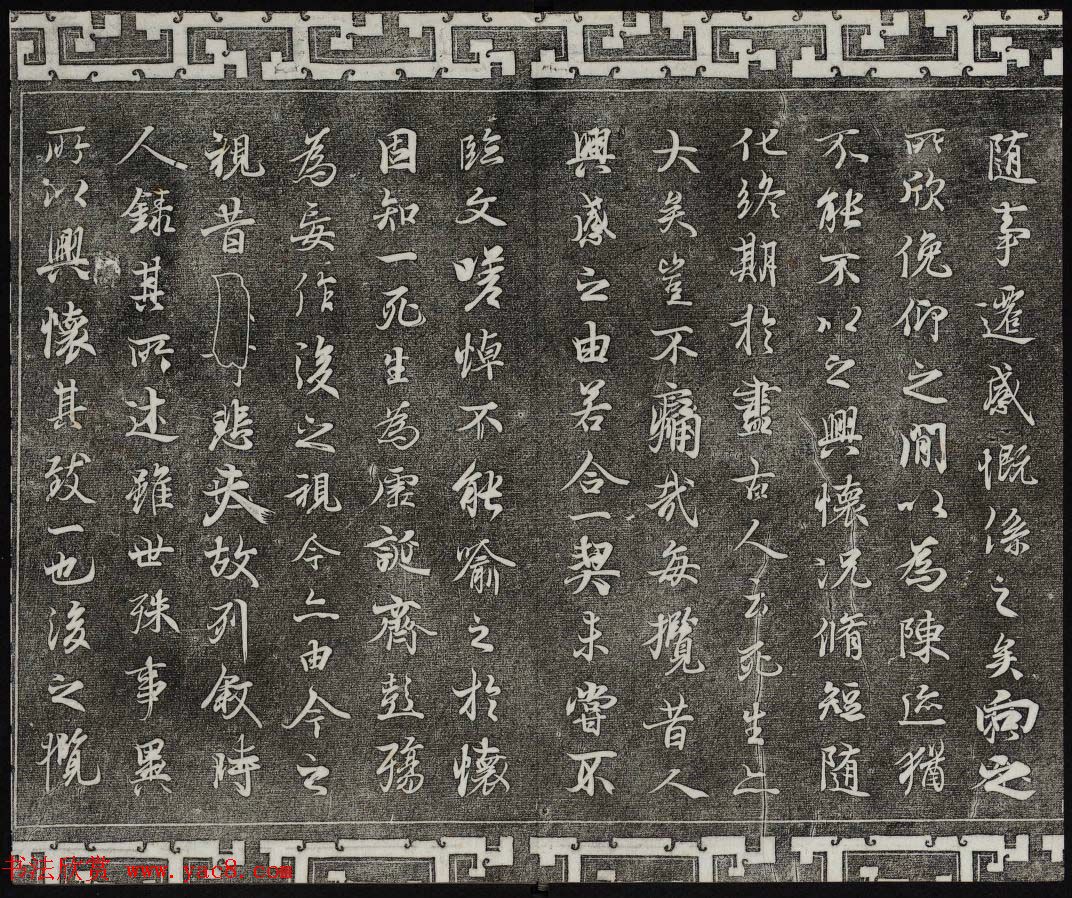 随事遷感慨係之矣向之
所欣俛仰之閒以為陳迹猶
不能不以之興懷況脩短随
化終期於盡古人云死生亦
大矣豈不痛哉每攬昔人
興感之由若合一契未嘗不
臨文嗟悼不能喻之於懷
固知一死生為虛誕齊彭殤
為妄作後之視今亦由今之
視昔悲夫故列叙時
人錄其所述雖世殊事異
所以興懷其致一也後之攬
书法欣赏 www.yac8.com